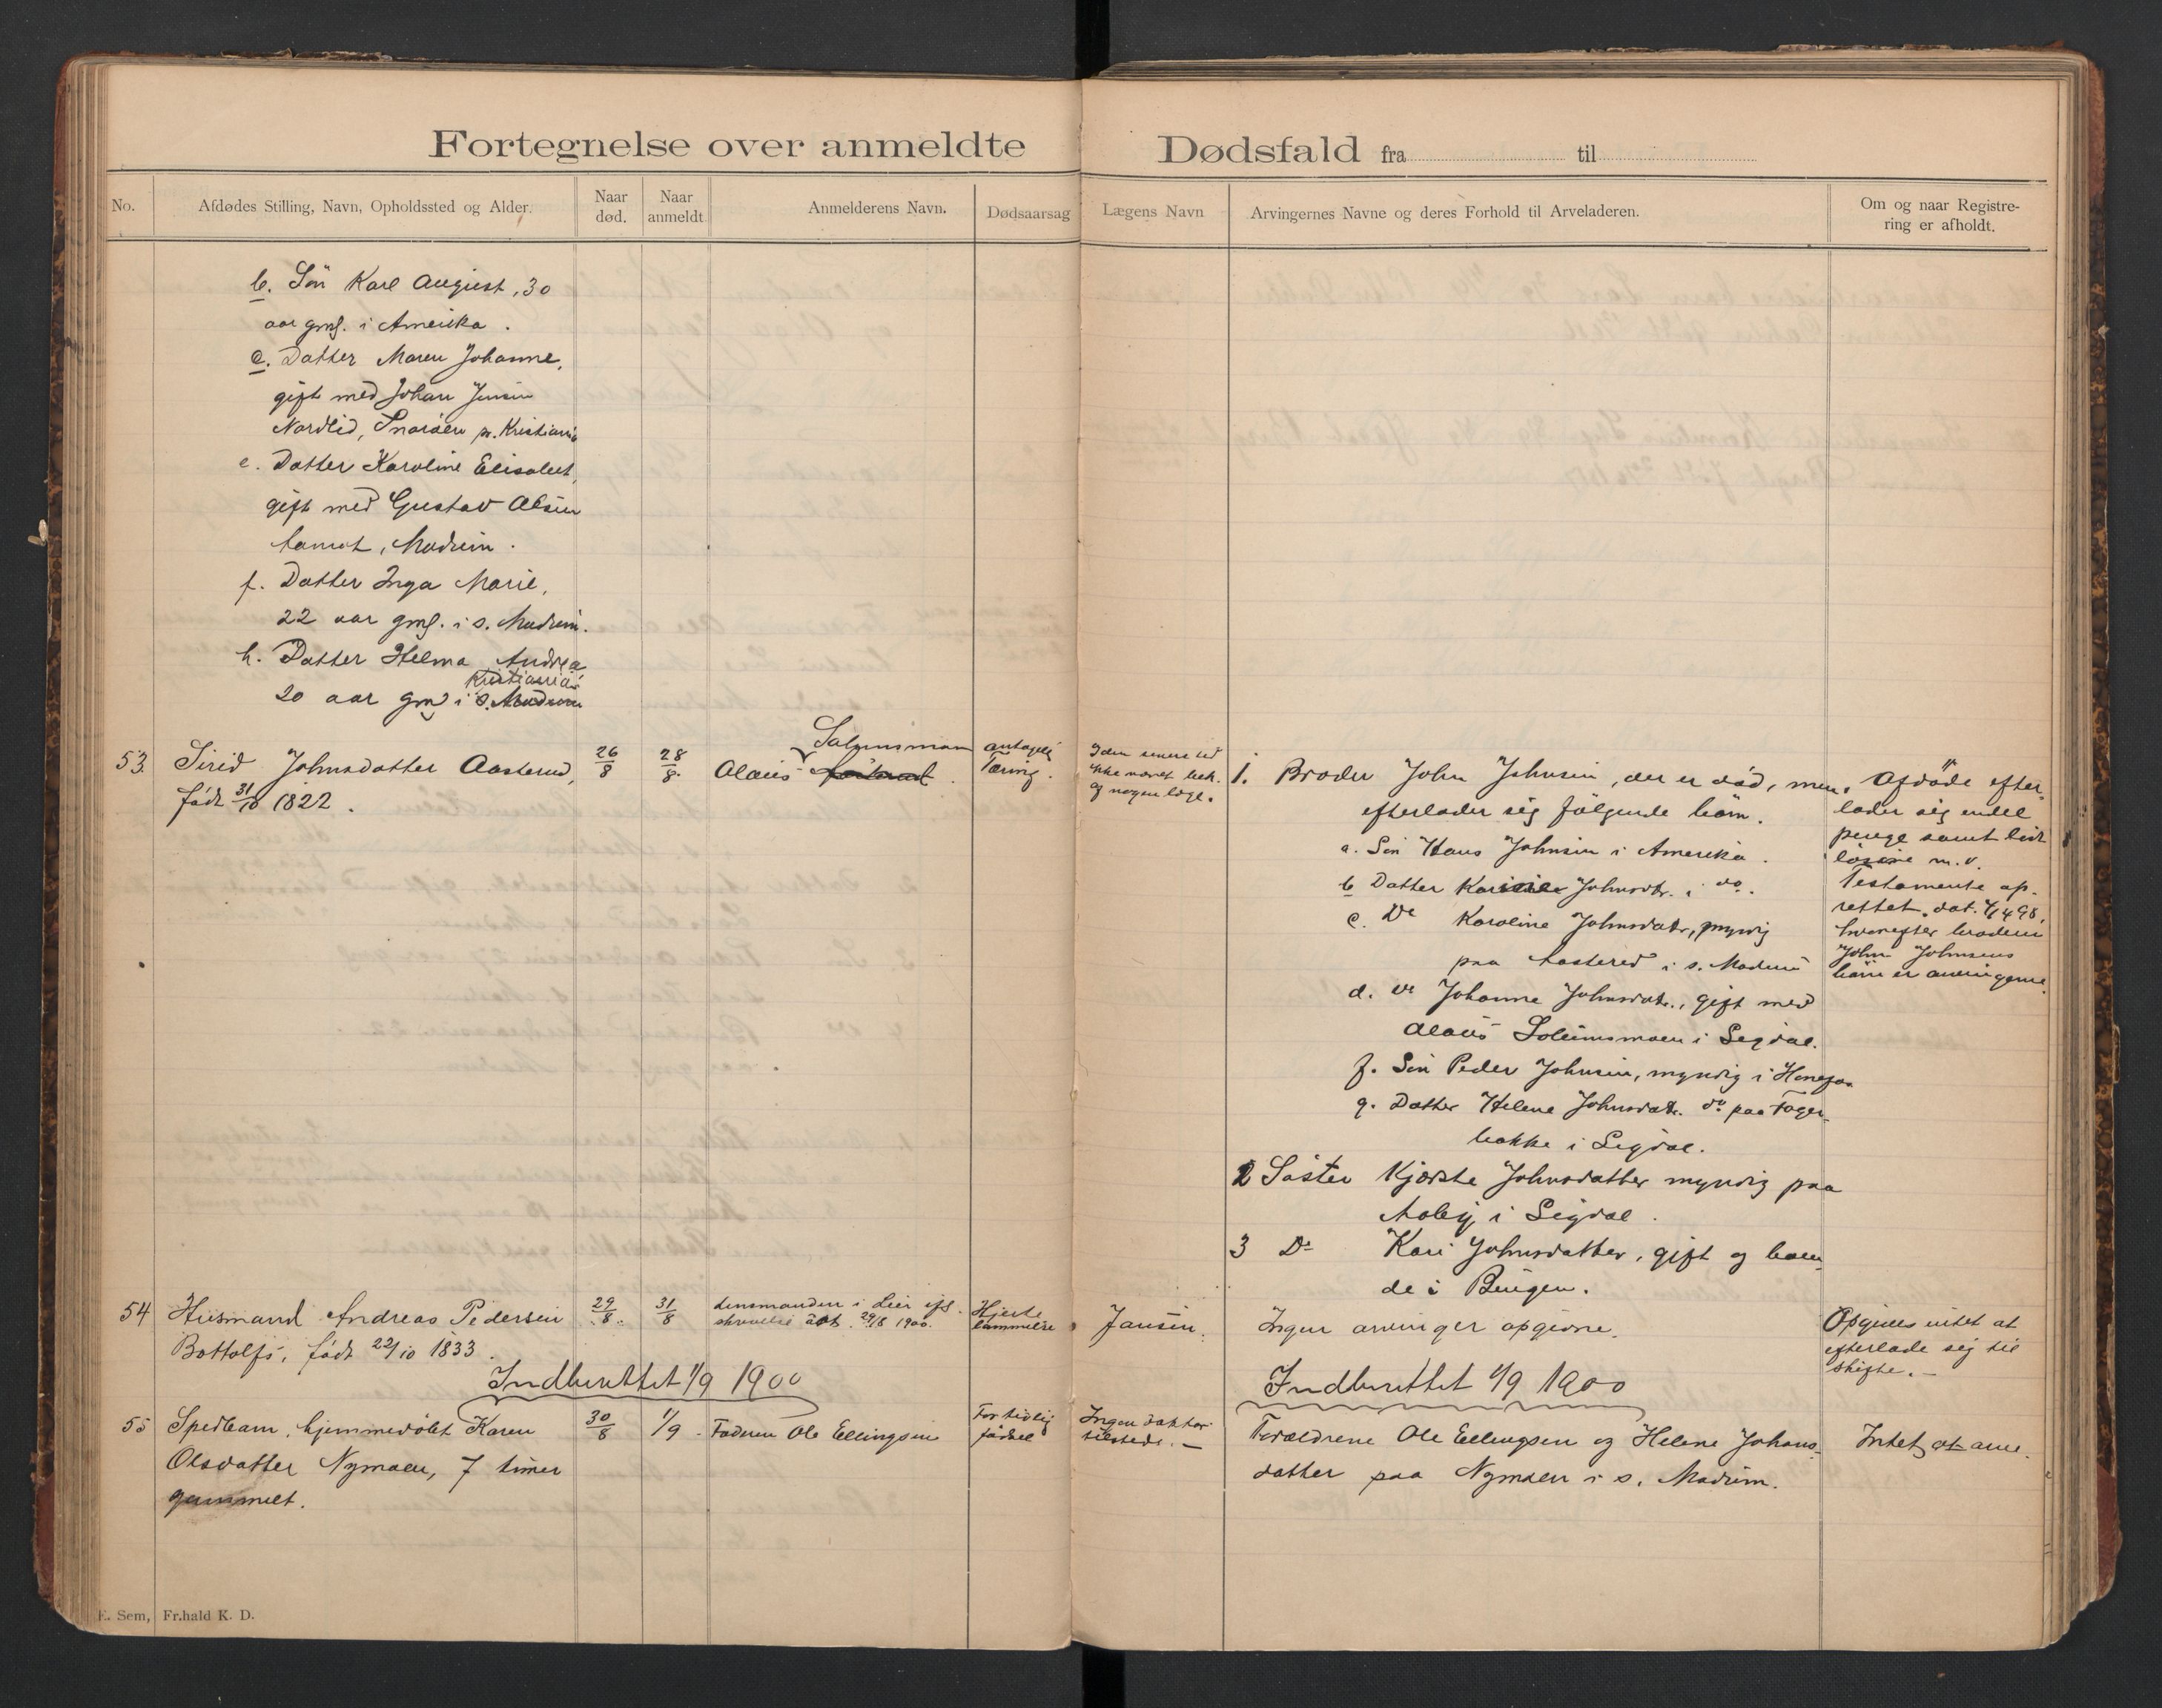 Fortegnelse over anmeldte Dødsfald fra til
No. Afdødes Stilling, Navn, Opholdssted og Alder. Naar død. Naar anmeldt Anmelderens Navn. Dødsaarsag Lægens Navn Arvingernes Navne og deres Forhold til Arveladeren. Om og naar Registrering er afholdt.
b. Sön Karl August, 30
aar gml. i Amerika.
c. Datter Maren Johanne,
gift med Johan Jensen
Nordlid, Snaröen pr. Kristiania
e. Datter Karoline Elisabet,
gift med Gustav Olsen
, Modum.
f. Datter Inga Marie,
22 aar gml. i s. Modum.
h. Datter Helma Andrea
Kristiania
20 aar gml i s. Modum
53. Sirid Johnsdatter Aasterud,
född 31/10 1822.
26/8
28/8.
Solumsmoen
Olaus
antagelig
Tæring.
I den senere tid
ikke været beh.
af nogen læge.
1. Broder John Johnsen, der er död, men
efterlader sig fölgende börn.
a. Sön Hans Johnsen i Amerika.
b Datter Johnsdtr. i do.
c. Do Karoline Johnsdatr, myndig
paa Aasterud i s. Modum
d. do Johanne Johnsdatr., gift med
Olaus Solumsmoen i Sigdal.
f. Sön Peder Johnsen, myndig i Hönefos
g. Datter Helene Johnsdatr. do paa Fager-
bakke i Sigdal.
2 Söster Kjerste Johnsdatter myndig paa
Aaby i Sigdal.
3 Do Kari Johnsdatter, gift og boen-
de i Bingen.
Afdöde efter-
lader sig endel
penge samt lidt
lösöre m.v.
Testamente op-
rettet, dat. 98,
hvorefter broderen
John Johnsens
börn er arvingerne.
54 Husmand Andreas Pedersen
Bottolfs, född 22/10 1833.
29/8.
31/8
Lensmanden i Lier ifl.
skrivelse dat. 29/8 1900.
Hjerte
lammelse
Jansen.
Ingen arvinger opgivne.
Opgives intet at
efterlade sig til
skifte.-
Indberettet 1/9 1900
Indberettet 1/9 1900
55 Spedbarn, hjemmedöbt Karen
Olsdatter Nymoen, 7 timer
gammelt.
30/8
1/9
Faderen Ole Ellingsen
For tidlig
födsel
Ingen doktor
tilstede.-
Forældrene Ole Ellingsen og Helene Johans-
datter paa Nymoen i s. Modum.
Intet at arve.
E. Sem, Fr.hald K. D.